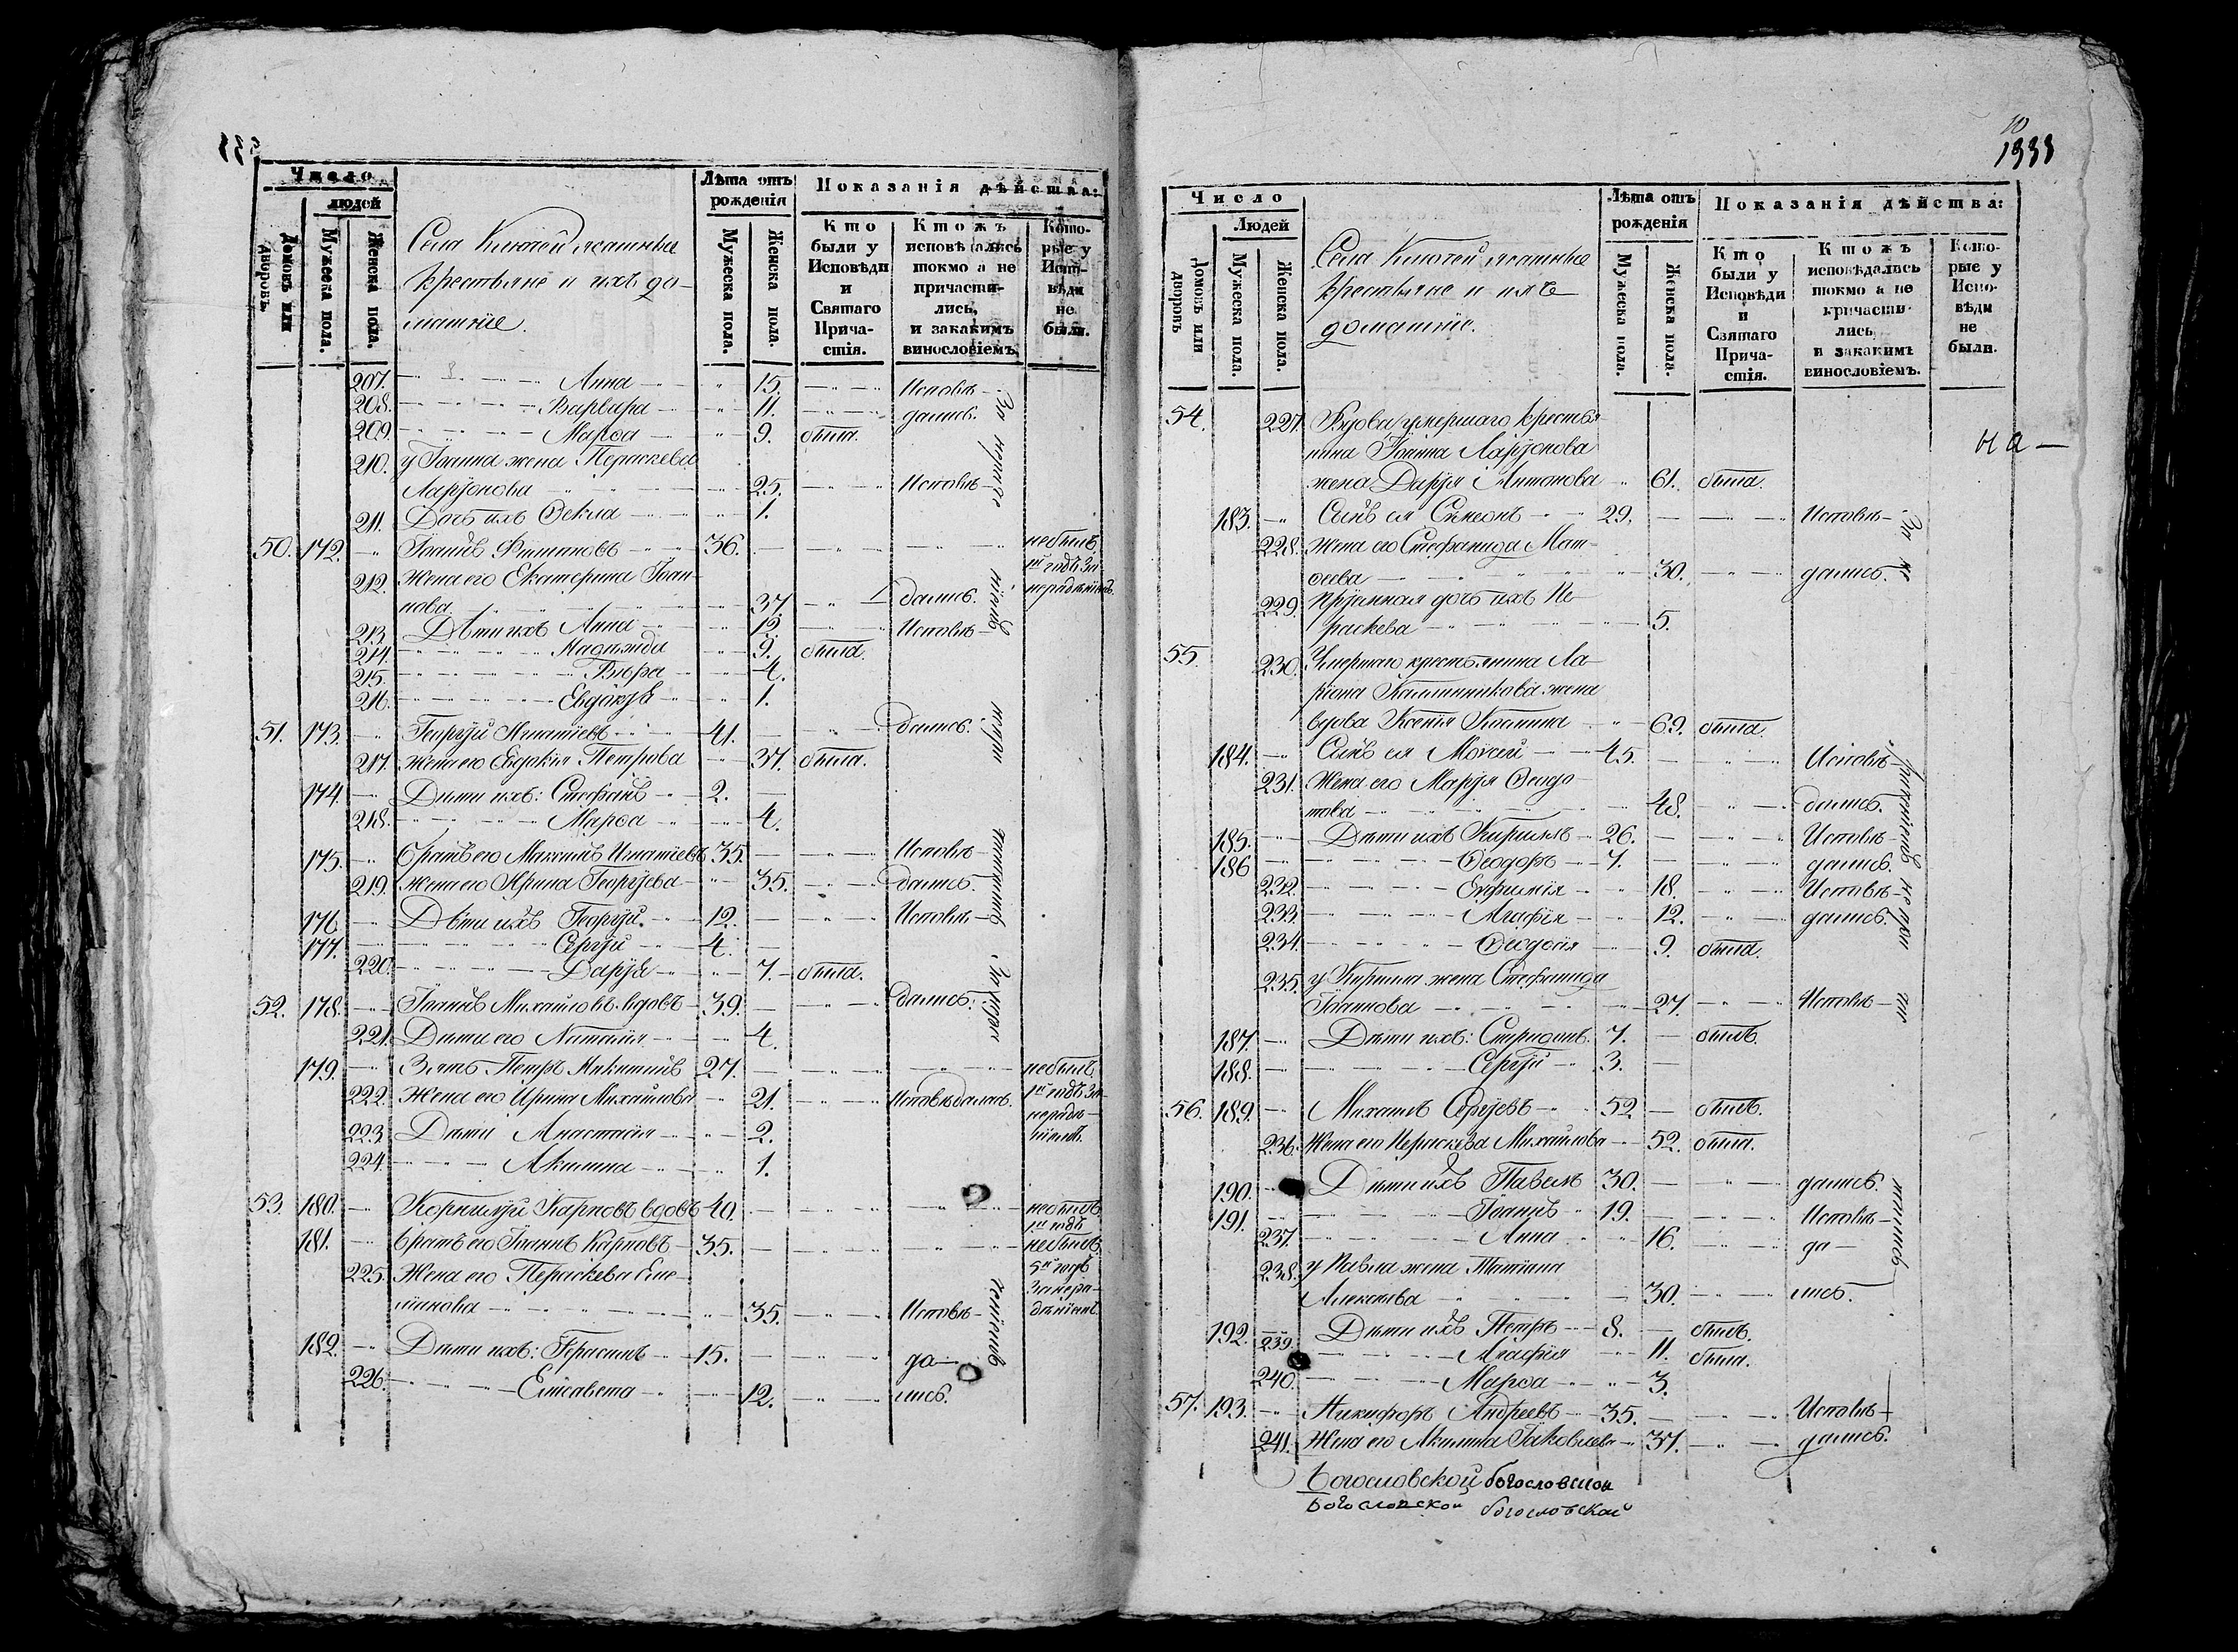 Число
людей
Домовъ или дворовъ.
Мужеска пола.
Женска пола.
Села Ключей ясашные
крестьяне и ихъ до-
машніе.
Лѣта отъ рожденія
Мужеска пола.
Женска пола.
Показанія дѣйства:
Кто были у Исповѣди и Святаго Прича-стія.
Ктожъ исповѣдались токмо а не причасти-лись, и закакимъ винословіемъ.
Кото-рые у Испо-вѣди не были.
207. Анна 15. Исповѣ-
208. Варвара 11. дались.
209. Марѳа 9. была.
210. у Іоанна жена Параскева
Ларіонова 25. Исповѣ-
211. Дочь ихъ Ѳекла 1.
50. 172. Іоаннъ Филиповъ 36. небылъ
212. Жена его Екатерина Іоан-
нова 37. дались.
213. Дѣти ихъ Анна 12. Исповѣ-
214. Надежда 9. была.
215. Вѣра 4.
216. Евдокія 1.
51. 173. Георгій Игнатіевъ 41. дались.
217. Жена его Евдокія Петрова 37. была.
174. Дѣти ихъ: Стефанъ 2.
218. Марѳа 4.
175. братъ его Максимъ Игнатіевъ 35. Исповѣ-
219. Жена его Ирина Георгіева 35. дались.
176. Дѣти ихъ Георгій 12. Исповѣ-
177. Сергій 4.
220. Дарія 7. была.
52. 178. Іоаннъ Михайловъ вдовъ 39. дались.
221. Дѣти его Наталія 4.
179. Зять Петръ Никитинъ 27. небылъ
222. Жена его Ирина Михайлова 21. Исповѣдалась. 1й годъ за
нерадѣ-
223. Дѣти Анастасія 2. ніемъ.
224. Акилина 1.
53. 180. Корнилій Карповъ вдовъ 40. небылъ
1й годъ
181. братъ его Іоаннъ Карповъ 35. небылъ
5й годъ
225. Жена его Параскева Еме-
ліянова 35. Исповѣ-
занера-
дѣніемъ.
182. Дѣти ихъ: Герасимъ 15. да-
226. Елисавета 12. лись.
10
1333
Число
Людей
Домовъ или дворовъ
Мужеска пола.
Женска пола.
Села Ключей ясашные
крестьяне и ихъ
домашніе.
Лѣта отъ рожденія
Мужеска пола.
Женска пола.
Показанія дѣйства:
Кто были у Исповѣди и Святаго Прича-стія.
Ктожъ исповѣдались токмо а не причасти-лись, и закакимъ винословіемъ.
Кото-рые у Испо-вѣди не были.
54. 227. Вдова умершаго крестья-
нина Іоанна Ларіонова
жена Дарія Антонова 61. была.
на-
183. Сынъ ея Симеонъ 29. Исповѣ-
228. Жена его Стефанида Мат-
ѳеева 30. дались.
229. Пріемная дочь ихъ Па-
раскева 5.
55. 230. Умершаго крестьянина Ла-
ріона Калинникова жена
вдова Ксенія 69. была.
184. Сынъ ея Мокей 45. Исповѣ-
231. Жена его Марія Ѳедо-
това 48. дались.
185. Дѣти ихъ Кириллъ 26. Исповѣ-
186. Ѳеодоръ 7. дались.
232. Евфимія 18. Исповѣ-
233. Агафія 12. дались.
234. Ѳеодосія 9. была.
235. у Кирила жена Стефанида
Іоаннова 27. Исповѣ-
187. Дѣти ихъ: Спиридонъ 7. былъ.
188. Сергій 3.
56. 189. Михаилъ Сергіевъ 52. былъ.
236. Жена его Параскева Михайлова 52. была.
190. Дѣти ихъ Павелъ 30. дались.
191. Іоаннъ 19. Исповѣ-
237. Анна 16. да-
238. у Павла жена Татіана
Алексѣева 30. лись.
192. Дѣти ихъ Петръ 8. былъ.
239. Агафія 11. была.
240. Марѳа 3.
57. 193. Никифоръ Андреевъ 35. Исповѣ-
241. Жена его Акилина Іаковлева 37. дались.
Богословской богословской
Богословской богословской